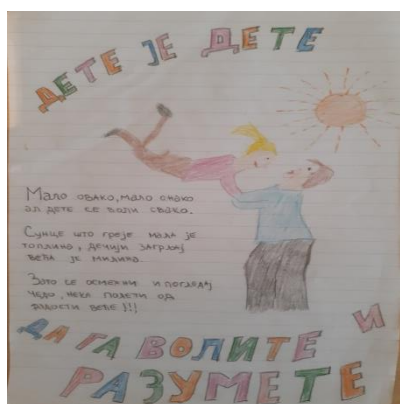 ДЕТЕ ЈЕ ДЕТЕ
Мало овако, мало онако
ал дете се воли свако.
Сунце што греје мала је
топлина, дечији загрљај
већа је милина.
Зато се осмехни и погледај
чедо, нека полети од
радости веће!!!
ДА ГА ВОЛИТЕ И
РАЗУМЕТЕ